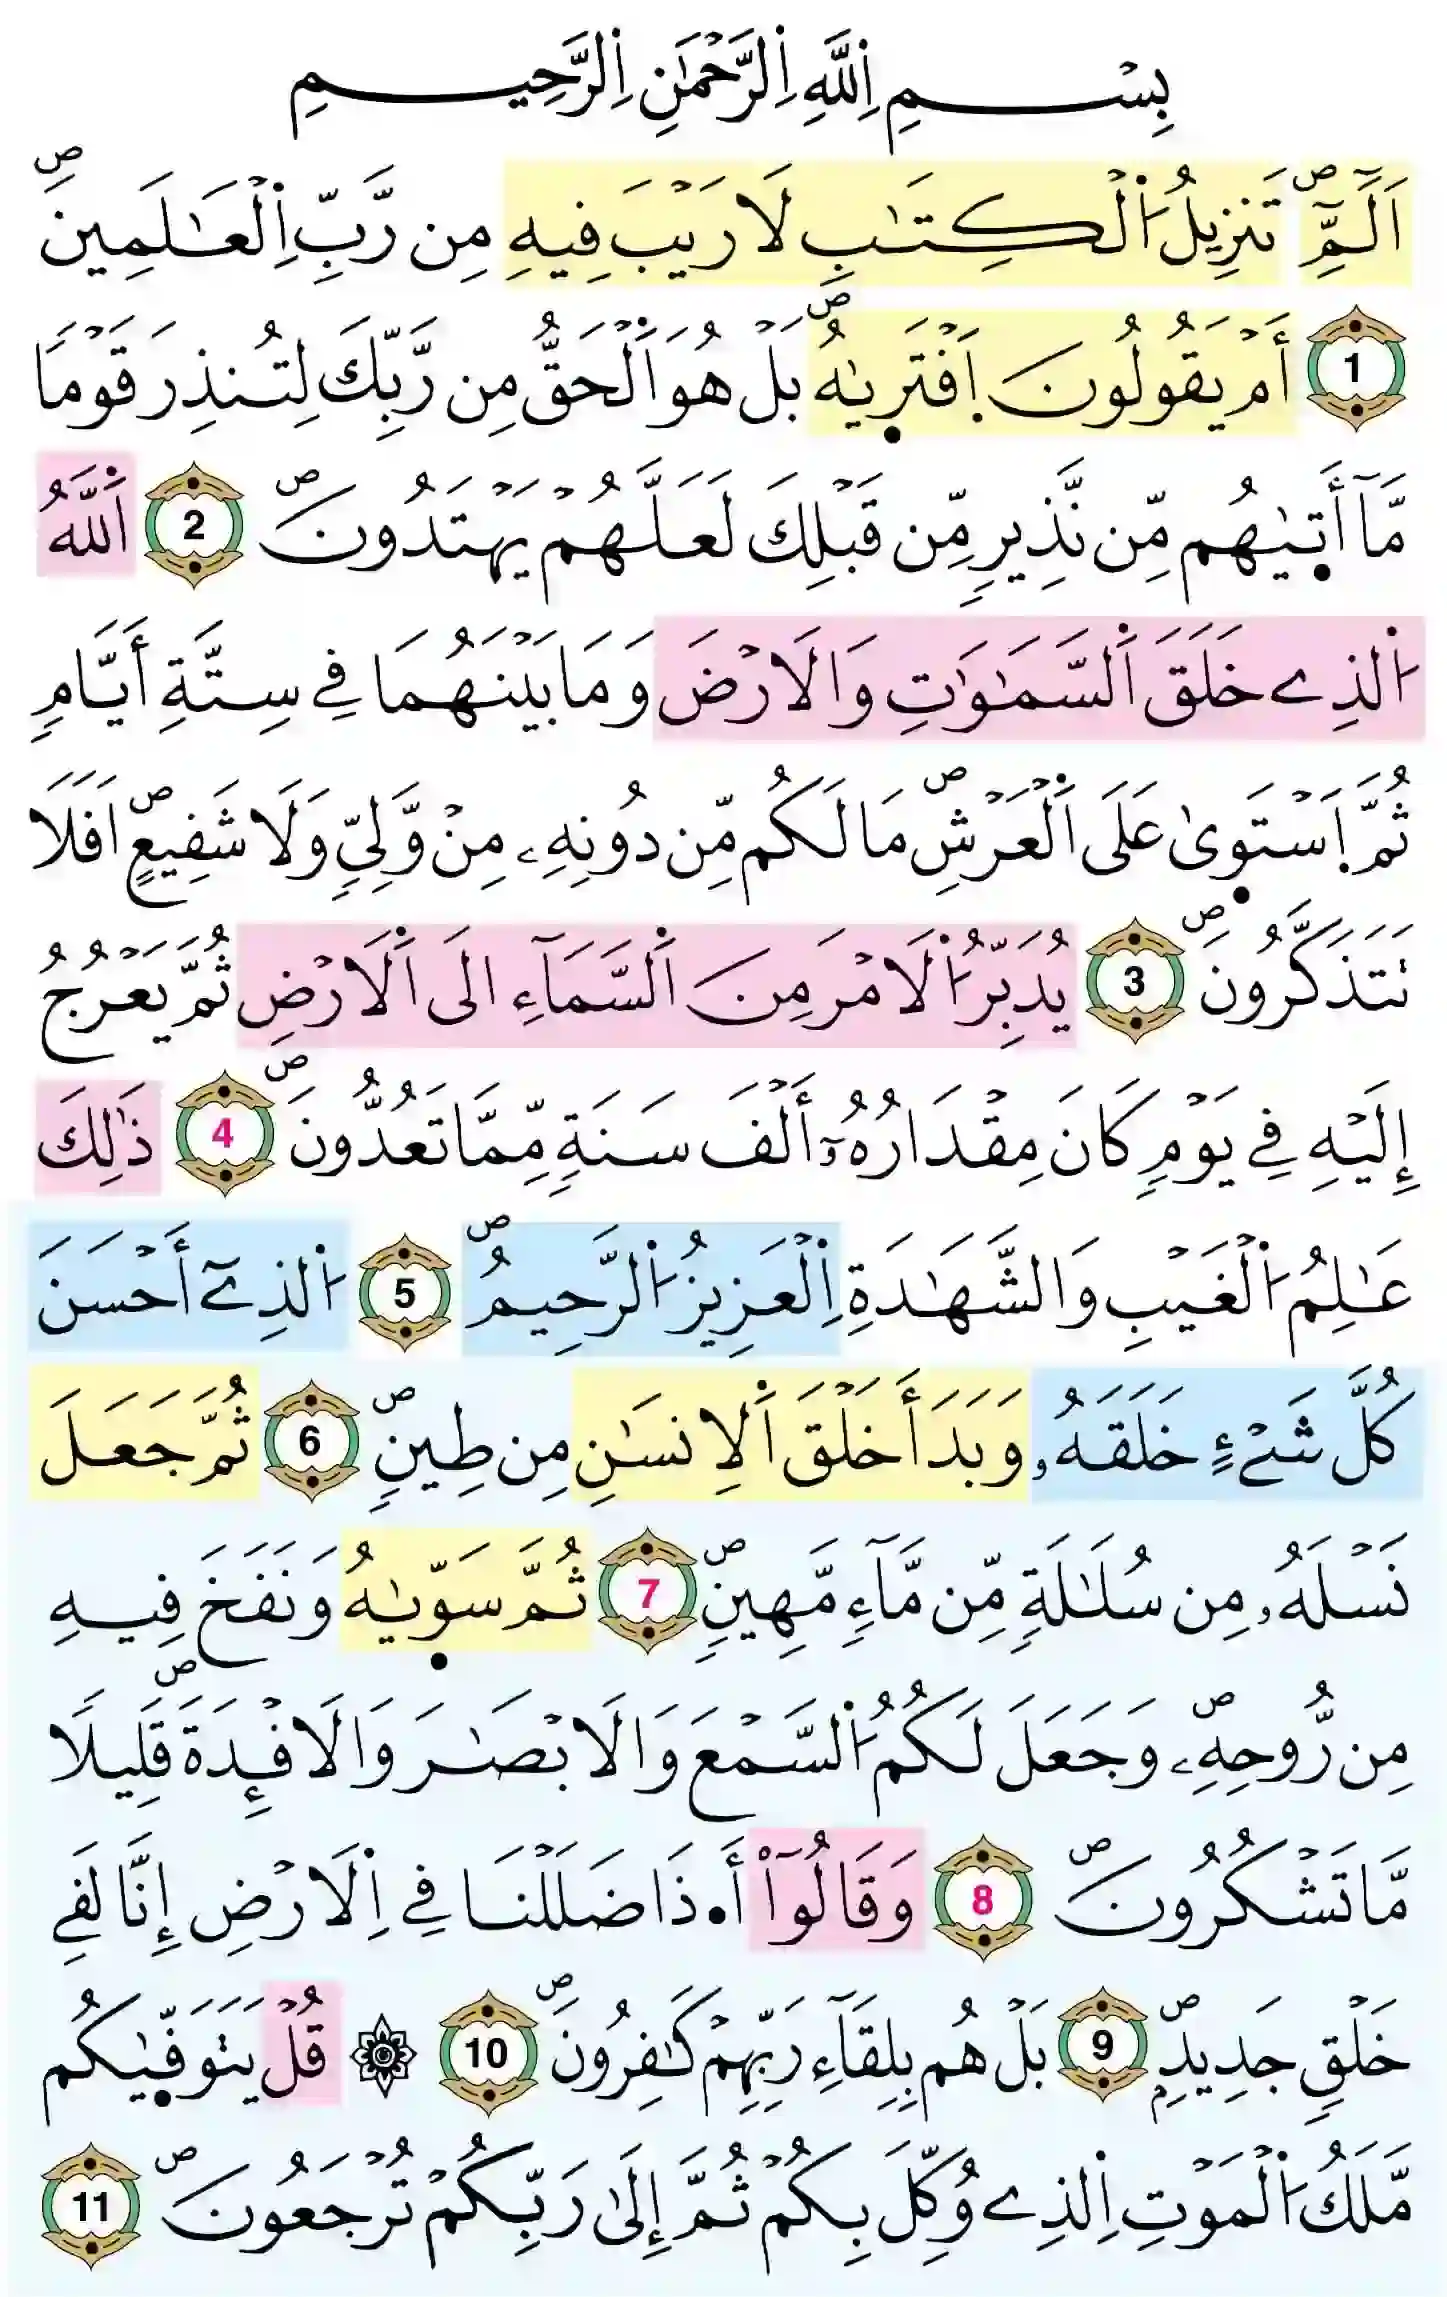 بِسْمِ اِللَّهِ اِلرَّحْمَٰنِ اِلرَّحِيمِ
اَلَٓمِّٓۖ تَنزِيلُ اُ۬لْكِتَٰبِ لَا رَيْبَ فِيهِ مِن رَّبِّ اِ۬لْعَٰلَمِينَۖ
1 أَمْ يَقُولُونَ اَ۪فْتَر۪يٰهُۖ بَلْ هُوَ اَ۬لْحَقُّ مِن رَّبِّكَ لِتُنذِرَ قَوْماٗ
مَّآ أَت۪يٰهُم مِّن نَّذِيرٖ مِّن قَبْلِكَ لَعَلَّهُمْ يَهْتَدُونَۖ 2 اَ۬للَّهُ
اُ۬لذِے خَلَقَ اَ۬لسَّمَٰوَٰتِ وَالَارْضَ وَمَا بَيْنَهُمَا فِے سِتَّةِ أَيَّامٖ
ثُمَّ اَ۪سْتَو۪يٰ عَلَي اَ۬لْعَرْشِۖ مَا لَكُم مِّن دُونِهِۦ مِنْ وَّلِيّٖ وَلَا شَفِيعٍۖ اَفَلَا
تَتَذَكَّرُونَۖ 3 يُدَبِّرُ اُ۬لَامْرَ مِنَ اَ۬لسَّمَآءِ اِلَي اَ۬لَارْضِ ثُمَّ يَعْرُجُ
إِلَيْهِ فِے يَوْمٖ كَانَ مِقْدَارُهُۥٓ أَلْفَ سَنَةٖ مِّمَّا تَعُدُّونَۖ 4 ذَٰلِكَ
عَٰلِمُ اُ۬لْغَيْبِ وَالشَّهَٰدَةِ اِ۬لْعَزِيزُ اُ۬لرَّحِيمُۖ 5 اُ۬لذِےٓ أَحْسَنَ
كُلَّ شَےْءٍ خَلَقَهُۥ وَبَدَأَ خَلْقَ اَ۬لِانسَٰنِ مِن طِينٖۖ 6 ثُمَّ جَعَلَ
نَسْلَهُۥ مِن سُلَٰلَةٖ مِّن مَّآءٖ مَّهِينٖۖ 7 ثُمَّ سَوّ۪يٰهُ وَنَفَخَ فِيهِ
مِن رُّوحِهِۦۖ وَجَعَلَ لَكُمُ اُ۬لسَّمْعَ وَالَابْصَٰرَ وَالَافْـِٕدَةَۖ قَلِيلاٗ
مَّا تَشْكُرُونَۖ 8 وَقَالُوٓاْ أَ.ذَا ضَلَلْنَا فِے اِ۬لَارْضِ إِنَّا لَفِے
خَلْقٖ جَدِيدِۢۖ 9 بَلْ هُم بِلِقَآءِ رَبِّهِمْ كَٰفِرُونَۖ 10 ۞ قُلْ يَتَوَفّ۪يٰكُم
مَّلَكُ اُ۬لْمَوْتِ اِ۬لذِے وُكِّلَ بِكُمْ ثُمَّ إِلَيٰ رَبِّكُمْ تُرْجَعُونَۖ 11